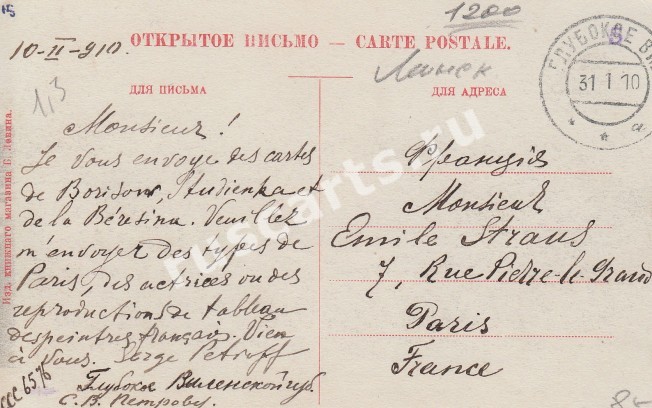 15
1200
10-II-910.
ОТКРЫТОЕ ПИСЬМО — CARTE POSTALE.
Минск
1,3
ДЛЯ ПИСЬМА
ДЛЯ АДРЕСА
ГЛУБОКОЕ ВИ
31 1 10
а
Изд. книжнаго магазина Б. Левина.
Monsieur!
Je vous envoye des cartes
de Borisow, Studienka et
de la Bérésina. Veuillez
m'envoyer des types de
Paris, des actrices ou des
reproductions de tableau
des peintres français. Vien
à vous. Serge Petroff
Глубокое Виленской губ.
С. В. Петрову.
Франція
Monsieur
Emile Straus
7, Rue Pierre-le-Grand
Paris
France
ccc 6576
ruscarts.ru